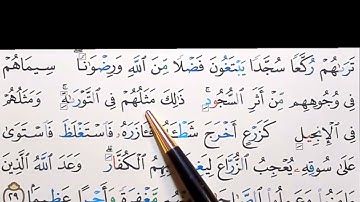 تَرَىٰهُمْ رُكَّعًا سُجَّدًا يَبْتَغُونَ فَضْلًا مِّنَ ٱللَّهِ وَرِضْوَٰنًا ۖ سِيمَاهُمْ
فِى وُجُوهِهِم مِّنْ أَثَرِ ٱلسُّجُودِ ۚ ذَٰلِكَ مَثَلُهُمْ فِى ٱلتَّوْرَىٰةِ ۚ وَمَثَلُهُمْ
فِى ٱلْإِنجِيلِ كَزَرْعٍ أَخْرَجَ شَطْـَٔهُۥ فَـَٔازَرَهُۥ فَٱسْتَغْلَظَ فَٱسْتَوَىٰ
عَلَىٰ سُوقِهِۦ يُعْجِبُ ٱلزُّرَّاعَ بِهِمُ ٱلْكُفَّارَ ۗ وَعَدَ ٱللَّهُ ٱلَّذِينَ
وَعَمِلُوا۟ مَّغْفِرَةً وَأَجْرًا عَظِيمًۢا ٢٩